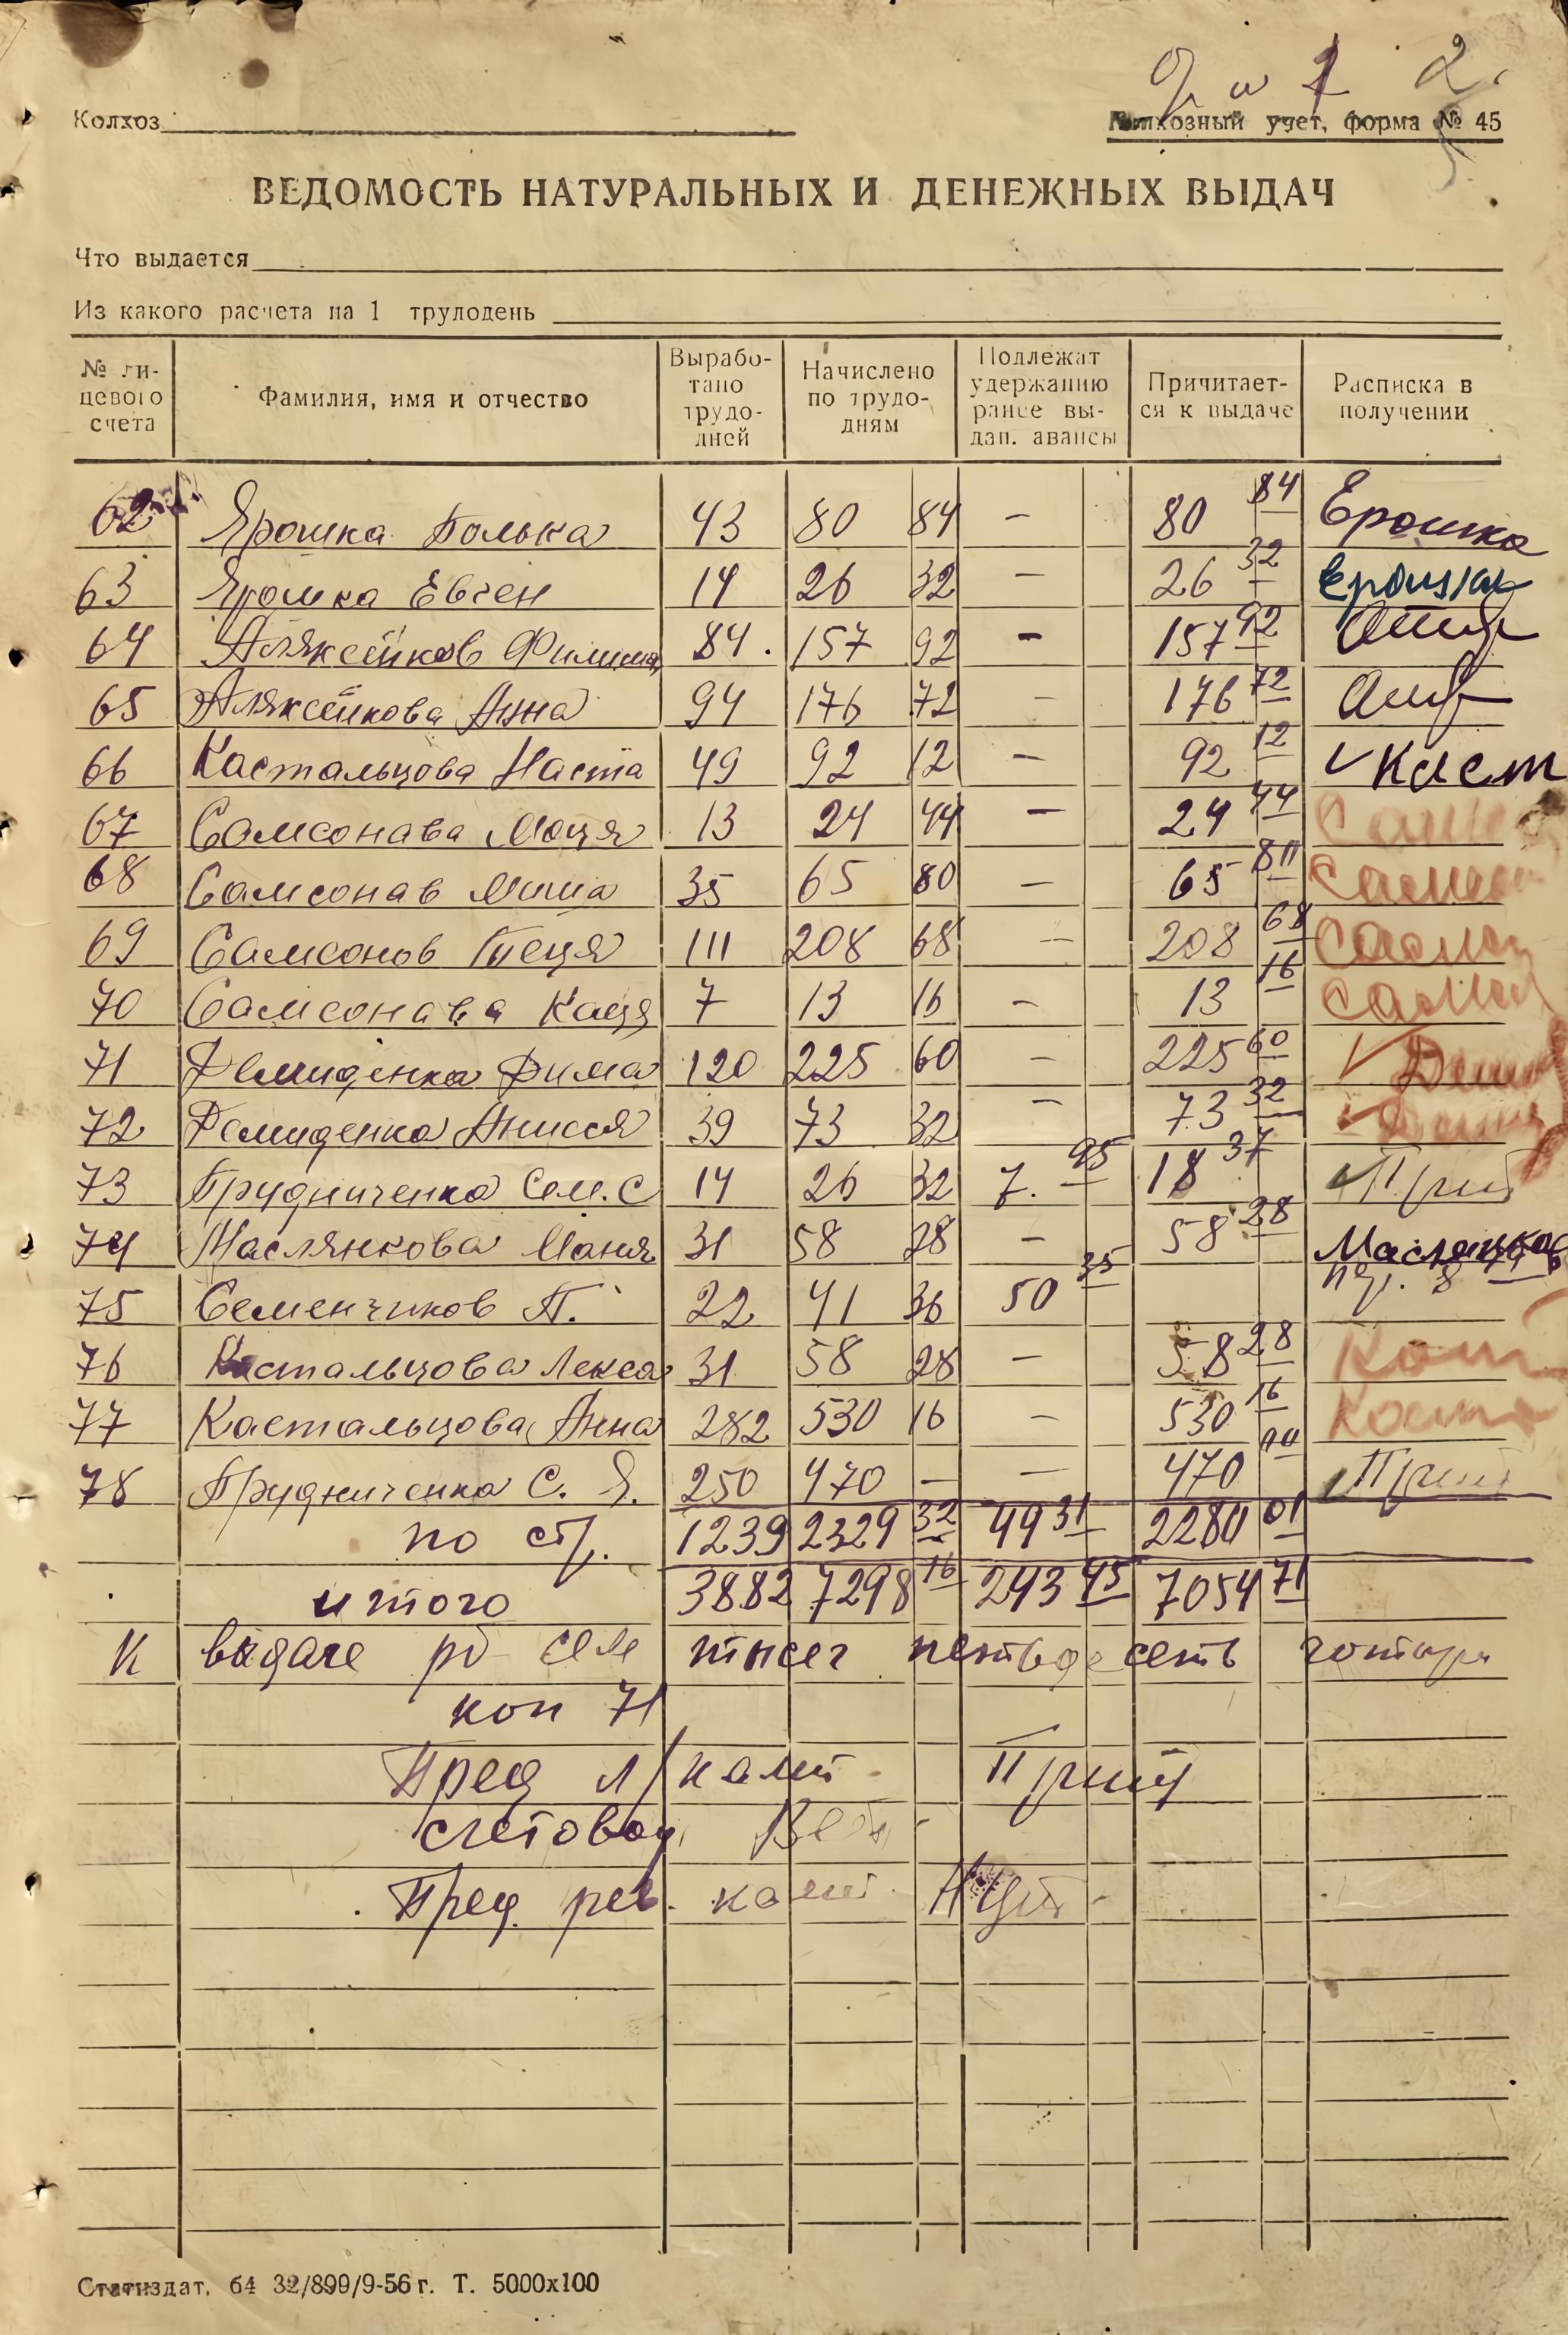 2
Колхоз
Колхозный учет, форма № 45
ВЕДОМОСТЬ НАТУРАЛЬНЫХ И ДЕНЕЖНЫХ ВЫДАЧ
Что выдается
Из какого расчета на 1 трудодень
№ лицевого счета Фамилия, имя и отчество Выработано трудодней Начислено по трудодням Подлежат удержанию ранее выдан. авансы Причитается к выдаче Расписка в получении
62 Ярошка Волька 43 80 84 – 80 84 Ерошка
63 Ярошка Евген 14 26 32 – 26 32 Ерошка
64 Аляксейков Филип 84. 157 92 – 157 92
65 Аляксейкова Анна 94 176 72 – 176 72
66 Кастальцова Наста 49 92 12 – 92 12 ✓ Каст
67 Самсонава Моця 13 24 44 – 24 44 Самс
68 Самсонав Миша 35 65 80 – 65 80 Самсо
69 Самсонов Теця 111 208 68 – 208 68 Самсо
70 Самсонава Каця 7 13 16 – 13 16 Самсо
71 Демиденка Дима 120 225 60 – 225 60 ✓ Деми
72 Демиденка Анисся 39 73 32 – 73 32 ✓ Деми
73 Прудниченка Сем. С 14 26 32 7. 95 18 37 ✓ Пруд
74 Маслянкова Маня 31 58 28 – 58 28 Маслянков
75 Семенчиков П. 22 41 36 50 35
76 Кастальцова Лекса 31 58 28 – 58 28 Каст
77 Кастальцова Анна 282 530 16 – 530 16 Коста
78 Прудниченка С. Я. 250 470 – – 470 00 ✓ Пруд
по стр. 1239 2329 32 49 31 2280 01
итого 3882 7298 16 243 45 7054 71
К выдаче рб сем тысеч пятьдесеть чотыри
коп 71
Пред л/камт. Пруд
счетовод
Пред. рев. камт.
Статиздат. 64 32/899/9-56 г. Т. 5000х100